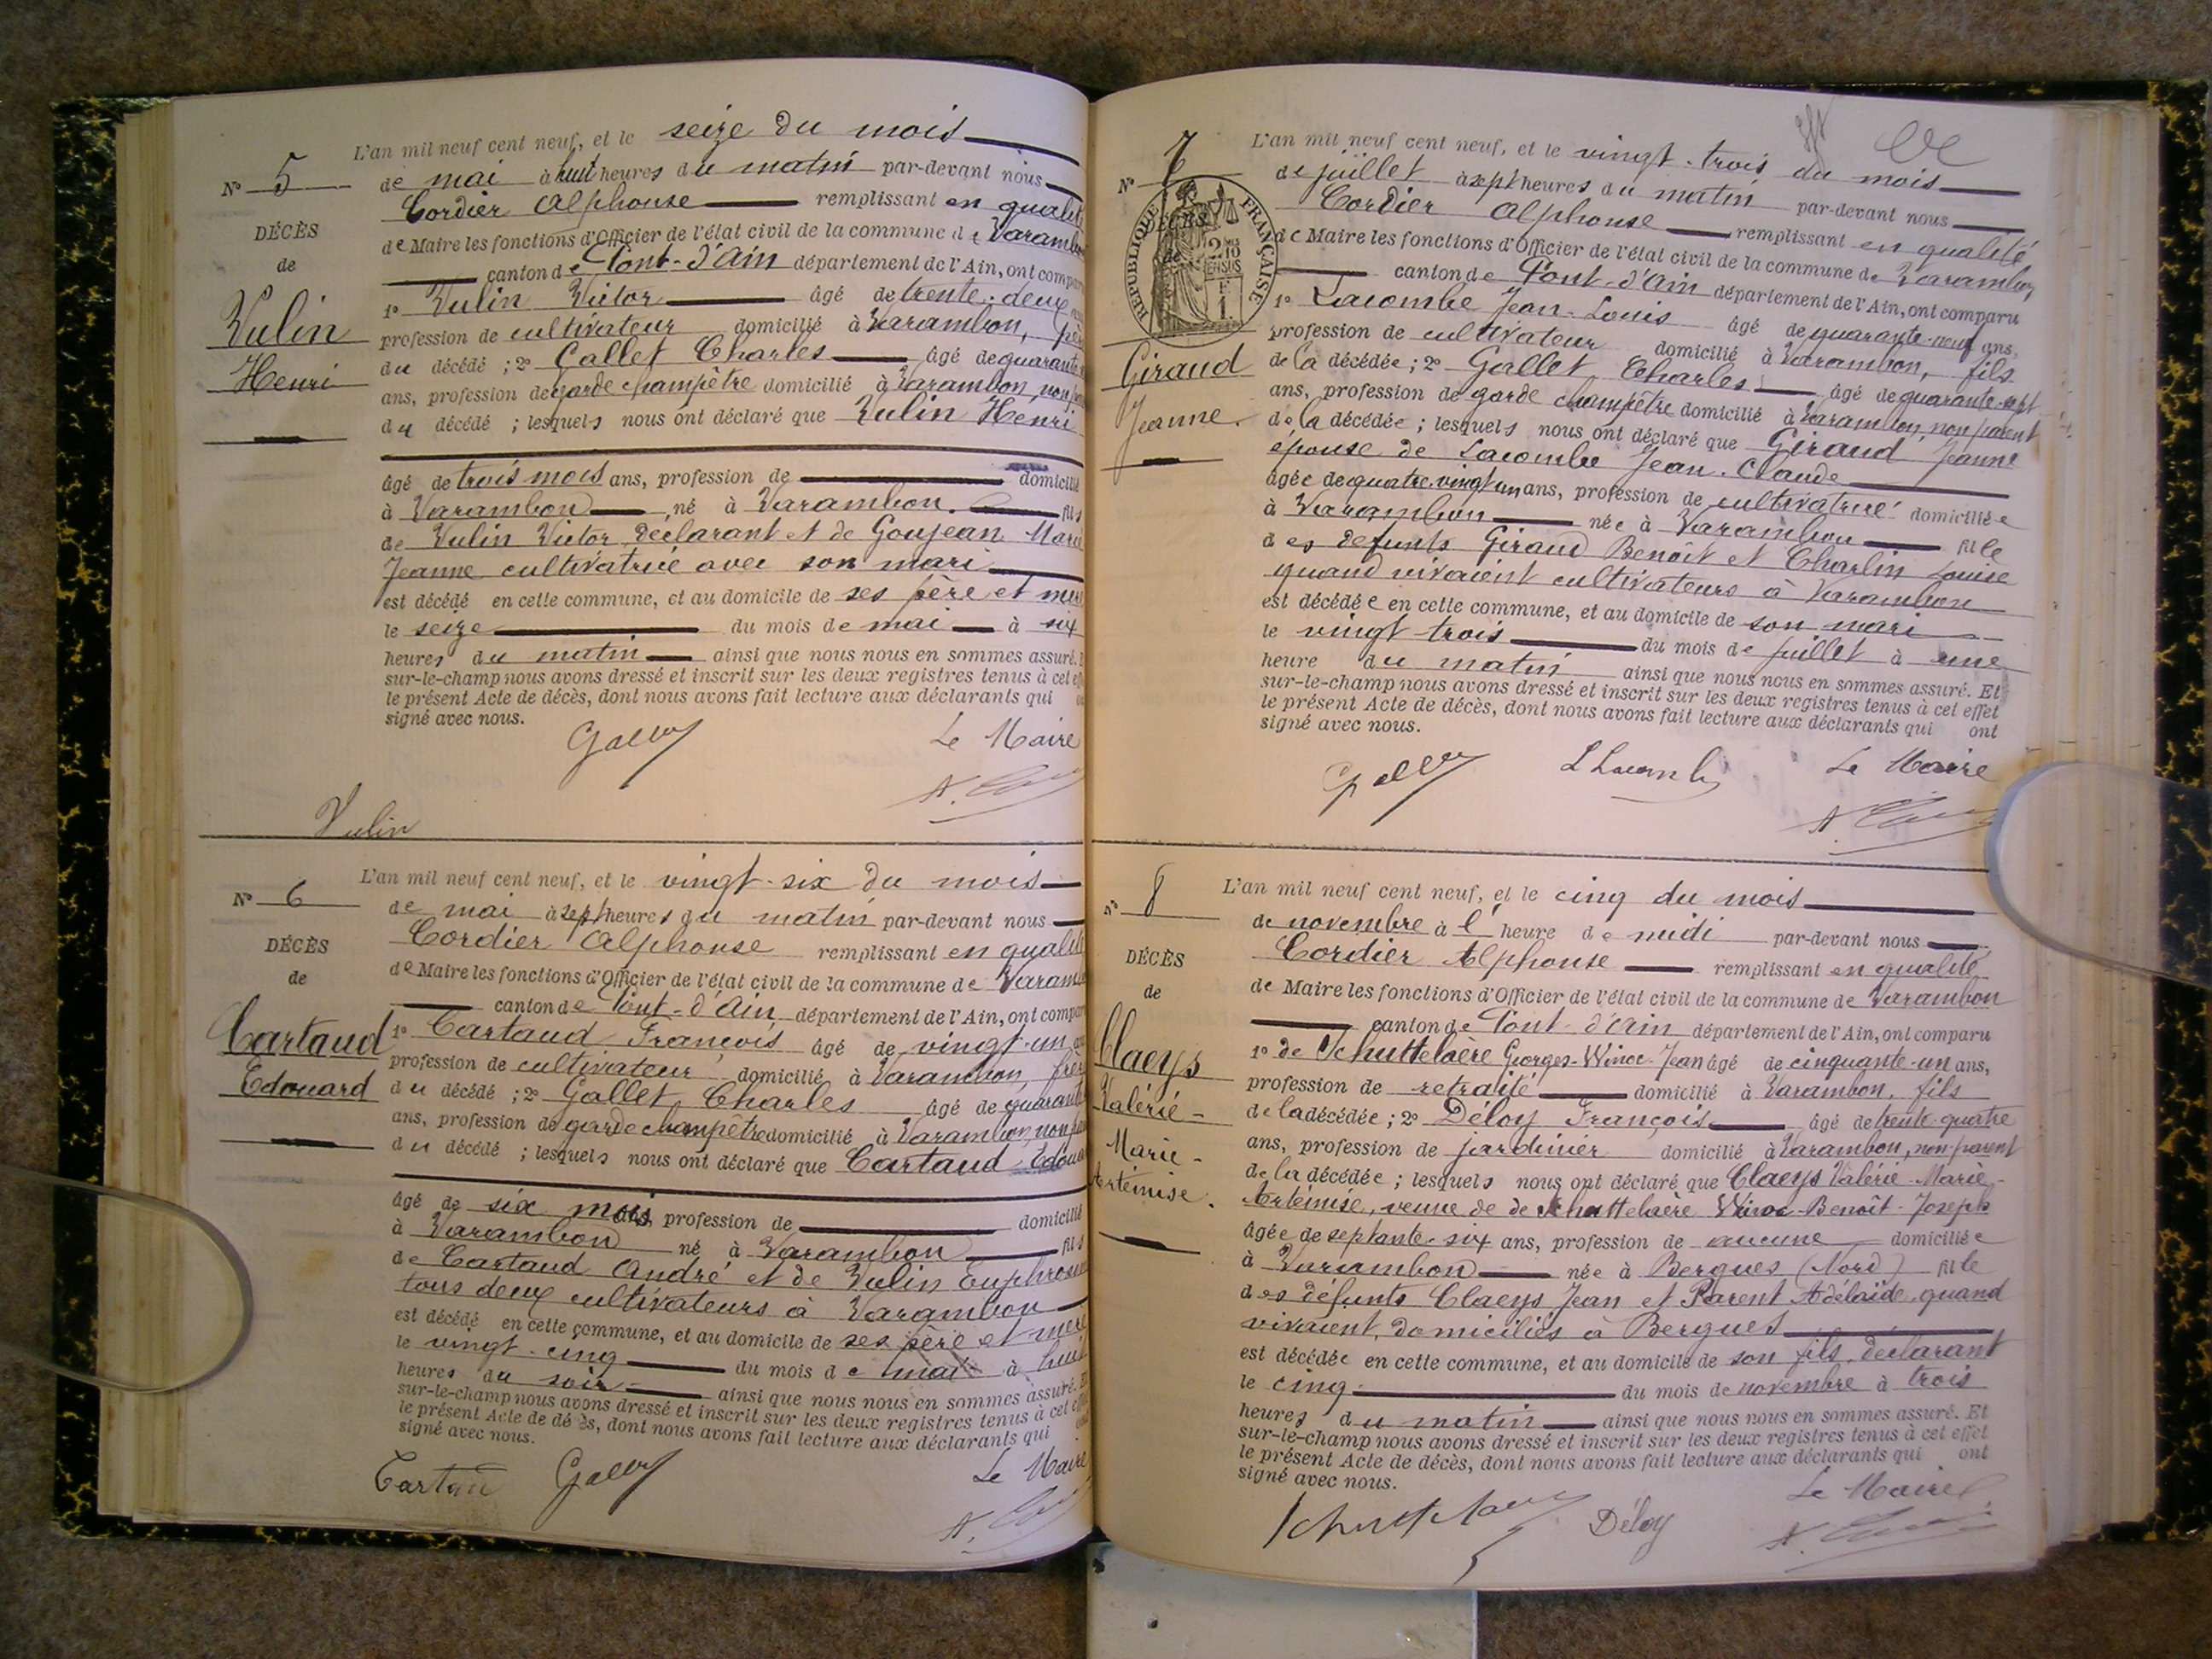 N° 5
DÉCÈS
de
Vulin
Henri
L'an mil neuf cent neuf, et le seize du mois
de mai à huit heures du matin par-devant nous
Cordier Alphonse remplissant en qualité
de Maire les fonctions d'Officier de l'état civil de la commune de Varambon
canton de Pont-d'Ain département de l'Ain, ont comparu
1° Vulin Victor âgé de trente-deux
profession de cultivateur domicilié à Varambon, père
du décédé ; 2° Gallet Charles âgé de quarante
ans, profession de garde champêtre domicilié à Varambon, non
du décédé ; lesquels nous ont déclaré que Vulin Henri
âgé de trois mois ans, profession de domicilié
à Varambon né à Varambon. fils
de Vulin Victor déclarant et de Goujean Marie
Jeanne cultivatrice avec son mari
est décédé en cette commune, et au domicile de ses père et mère
le seize du mois de mai à six
heures du matin ainsi que nous nous en sommes assuré.
sur-le-champ nous avons dressé et inscrit sur les deux registres tenus à cet effet
le présent Acte de décès, dont nous avons fait lecture aux déclarants qui
signé avec nous.
Gallet Le Maire
Vulin
N° 6
DÉCÈS
de
Cartaud
Edouard
L'an mil neuf cent neuf, et le vingt-six du mois
de mai à sept heures du matin par-devant nous
Cordier Alphonse remplissant en qualité
de Maire les fonctions d'Officier de l'état civil de la commune de Varambon
canton de Pont-d'Ain département de l'Ain, ont comparu
1° Cartaud François âgé de vingt-un
profession de cultivateur domicilié à Varambon, frère
du décédé ; 2° Gallet Charles âgé de quarante
ans, profession de garde champêtre domicilié à Varambon, non
du décédé ; lesquels nous ont déclaré que Cartaud Edouard
âgé de six mois ans, profession de domicilié
à Varambon né à Varambon fils
de Cartaud André et de Vulin Euphrosine
tous deux cultivateurs à Varambon
est décédé en cette commune, et au domicile de ses père et mère
le vingt-cinq du mois de mai à huit
heures du soir ainsi que nous nous en sommes assuré. Et
sur-le-champ nous avons dressé et inscrit sur les deux registres tenus à cet effet
le présent Acte de décès, dont nous avons fait lecture aux déclarants qui
signé avec nous.
Cartau Gallet Le Maire
N° 7
DÉCÈS
de
RÉPUBLIQUE FRANÇAISE
2/10 EN SUS
F
1.
Giraud
Jeanne.
L'an mil neuf cent neuf, et le vingt-trois du mois
de juillet à sept heures du matin par-devant nous
Cordier Alphonse remplissant en qualité
de Maire les fonctions d'Officier de l'état civil de la commune de Varambon
canton de Pont-d'Ain département de l'Ain, ont comparu
1° Lacombe Jean-Louis âgé de quarante-neuf ans,
profession de cultivateur domicilié à Varambon, fils
de la décédée ; 2° Gallet Charles âgé de quarante-sept
ans, profession de garde champêtre domicilié à Varambon, non parent
de la décédée ; lesquels nous ont déclaré que Giraud Jeanne
épouse de Lacombe Jean-Claude
âgée de quatre-vingt un ans, profession de cultivatrice domiciliée
à Varambon née à Varambon fille
des défunts Giraud Benoît et Charlin Louise
quand vivaient cultivateurs à Varambon
est décédée en cette commune, et au domicile de son mari
le vingt trois du mois de juillet à une
heure du matin ainsi que nous nous en sommes assuré. Et
sur-le-champ nous avons dressé et inscrit sur les deux registres tenus à cet effet
le présent Acte de décès, dont nous avons fait lecture aux déclarants qui ont
signé avec nous.
Gallet L Lacombe Le Maire
N° 8
DÉCÈS
de
Claeys
Valérie-
Marie-
Artémise.
L'an mil neuf cent neuf, et le cinq du mois
de novembre à l' heure de midi par-devant nous
Cordier Alphonse remplissant en qualité
de Maire les fonctions d'Officier de l'état civil de la commune de Varambon
canton de Pont-d'Ain département de l'Ain, ont comparu
1° de Schuttelaère Georges-Winoc-Jean âgé de cinquante-un ans,
profession de retraité domicilié à Varambon, fils
de la décédée ; 2° Déloy François âgé de trente-quatre
ans, profession de jardinier domicilié à Varambon, non parent
de la décédée ; lesquels nous ont déclaré que Claeys Valérie-Marie-
Artémise, veuve de de Schuttelaère Winoc-Benoît-Joseph
âgée de septante-six ans, profession de aucune domiciliée
à Varambon née à Bergues (Nord) fille
des défunts Claeys Jean et Parent Adélaïde quand
vivaient, domiciliés à Bergues
est décédée en cette commune, et au domicile de son fils, déclarant
le cinq du mois de novembre à trois
heures du matin ainsi que nous nous en sommes assuré. Et
sur-le-champ nous avons dressé et inscrit sur les deux registres tenus à cet effet
le présent Acte de décès, dont nous avons fait lecture aux déclarants qui ont
signé avec nous.
Déloy Le Maire